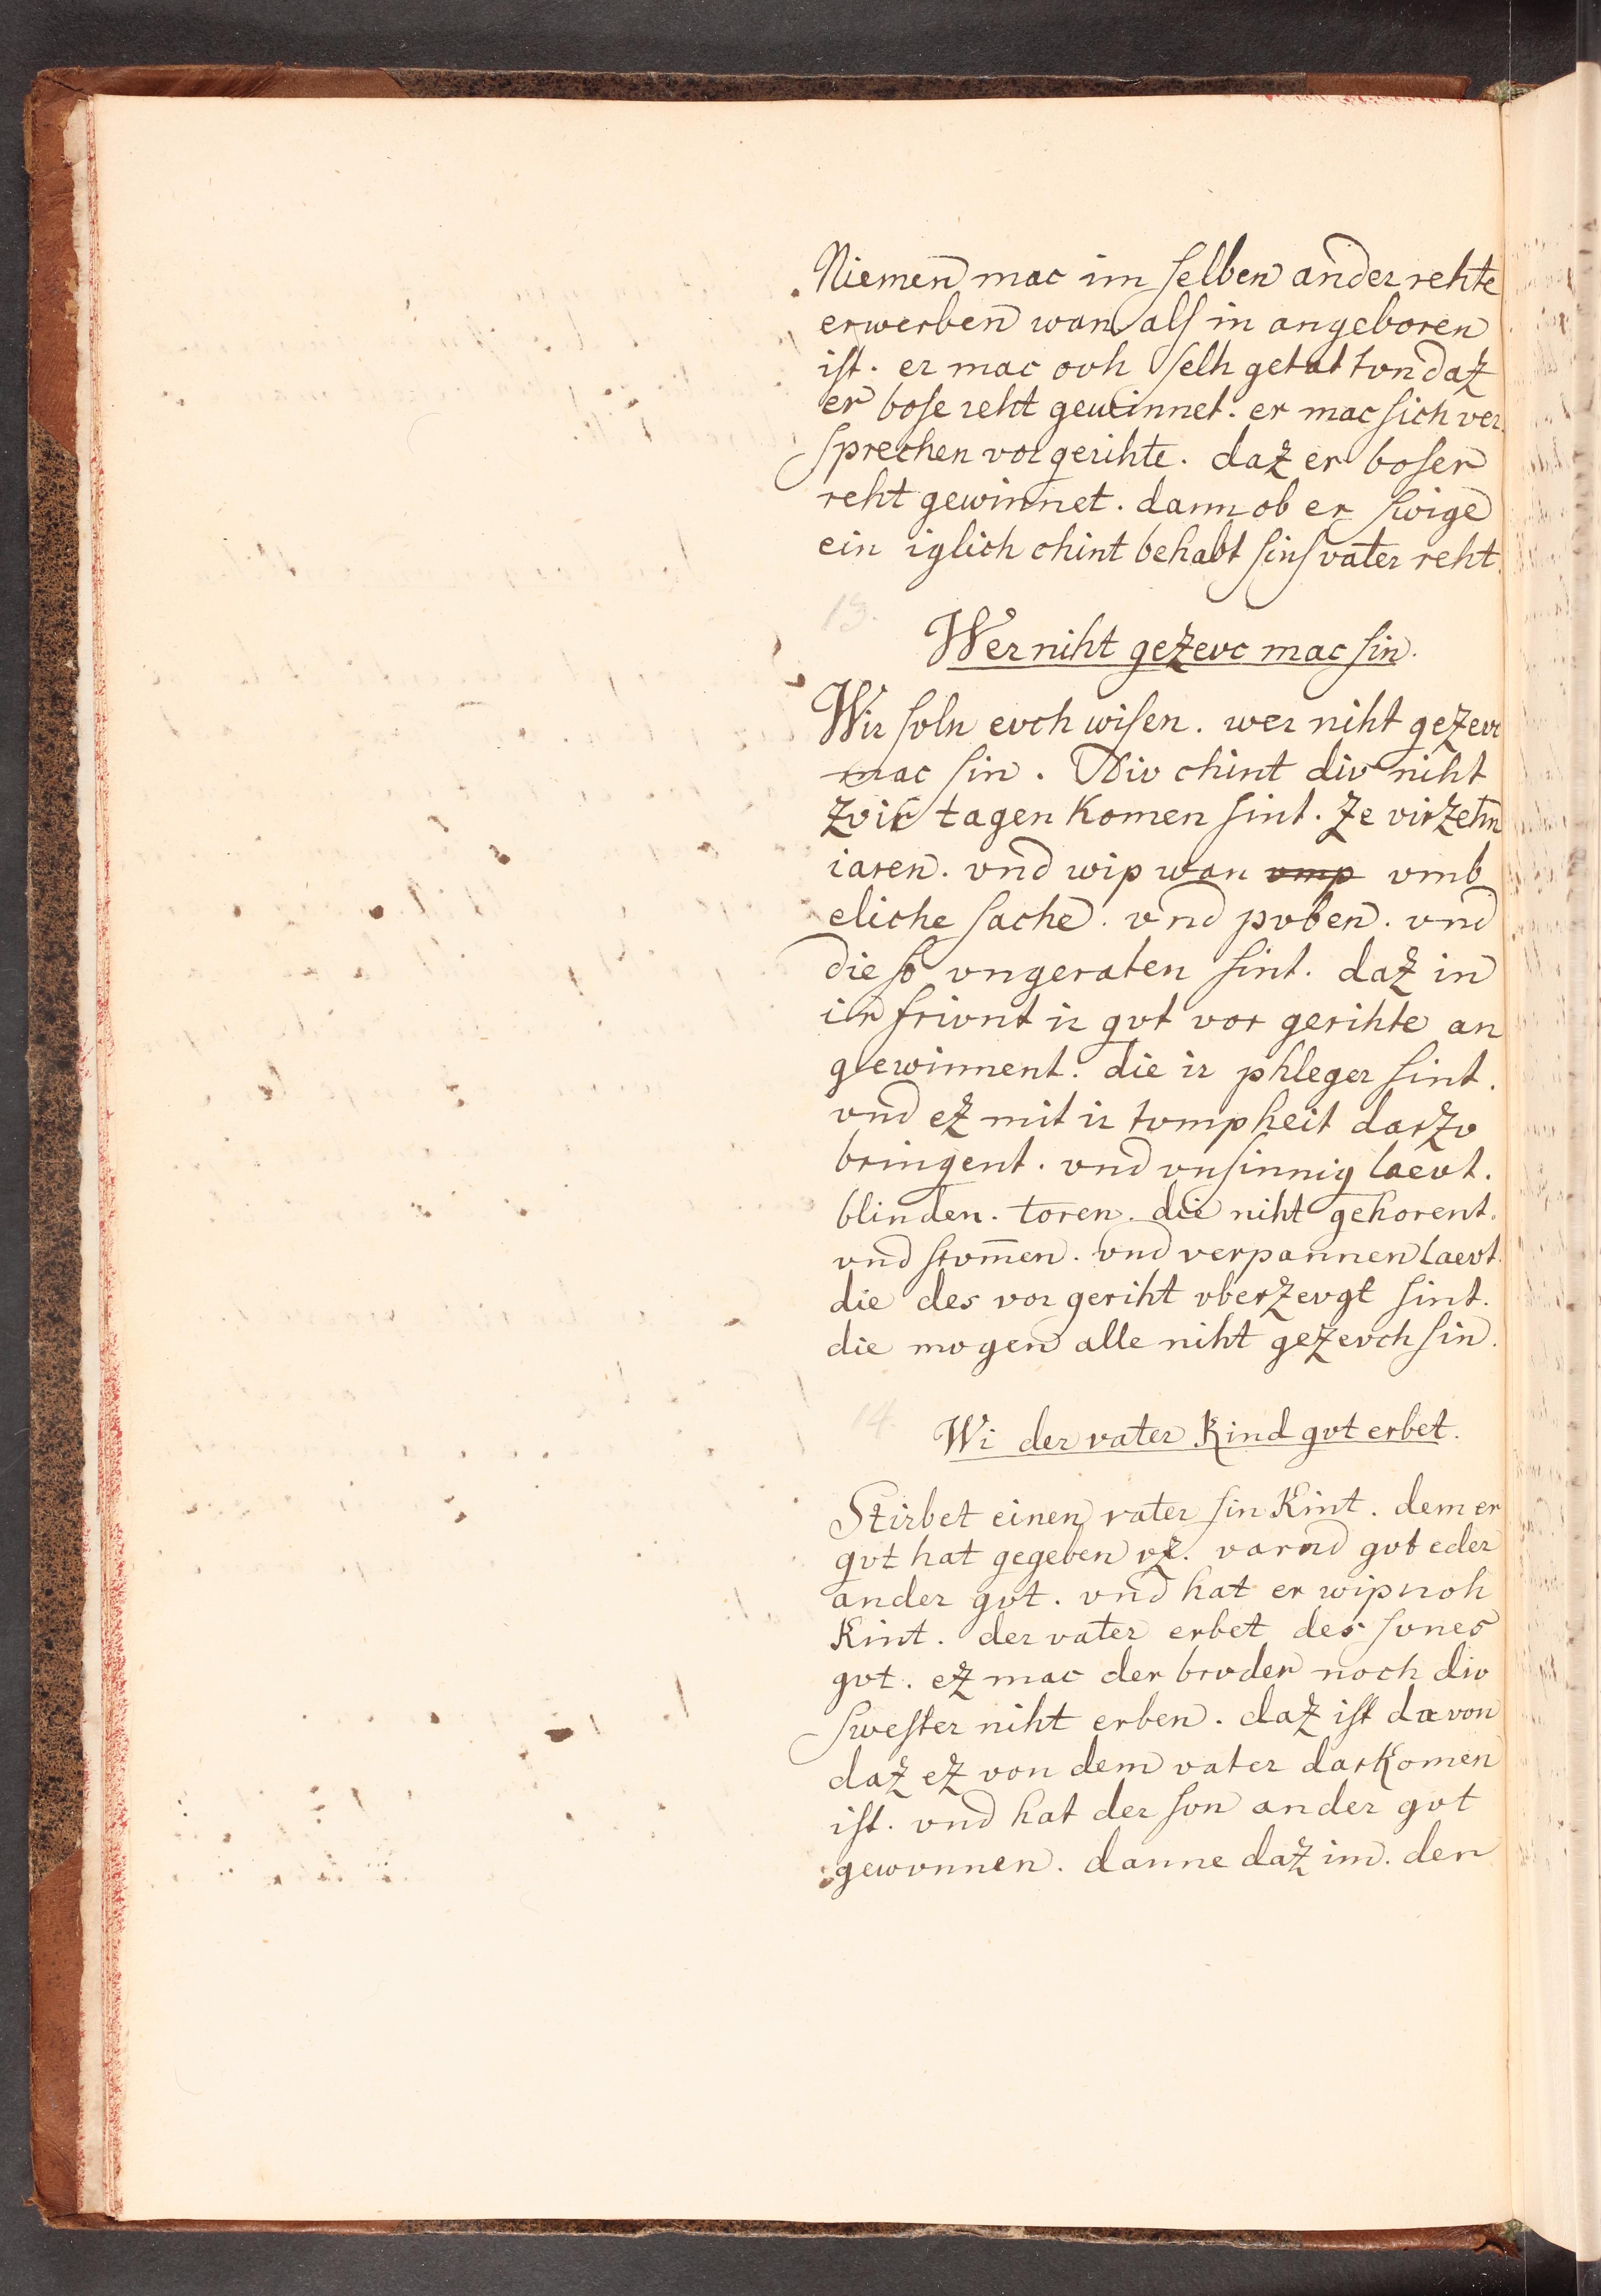 Niemen mac im selben ander rehte
erwerben wan als in angeboren
ist. er mac ovh selh getat tvn daz
er bose reht gewinnet. er mac sich ver
sprechen vor gerihte. daz er boser
reht gewinnet. dann ob er swige
ein iglich chint behabt sins vater reht.
13.
Wer niht gezevc mac sin.
Wir soln evch wisen. wer niht gezevc
mac sin. Div chint div niht
zvir tagen komen sint. ze virzehn
iaren. vnd wip wan vmp vmb
eliche sache. vnd pvben. vnd
die so vngeraten sint. daz in
ir frivnt ir gvt vor gerihte an
gewinnent. die ir phleger sint.
vnd ez mit ir tvmpheit darzv
bringent. vnd vnsinnig laevt.
blinden. toren. die niht gehorent.
vnd stvm̅en. vnd verpannen laevt.
die des vor geriht vberzevgt sint.
die mvgen alle niht gezevch sin.
14.
Wi der vater Kind gvt erbet.
Stirbet einen vater sin Kint. dem er
gvt hat gegeben vz. varnd gvt eder
ander gvt. vnd hat er wip noh
Kint. der vater erbet des svnes
gvt. ez mac der brvder noch div
swester niht erben. daz ist da von
daz ez von dem vater darkomen
ist. vnd hat der svn ander gvt
gewvnnen. danne daz im. der